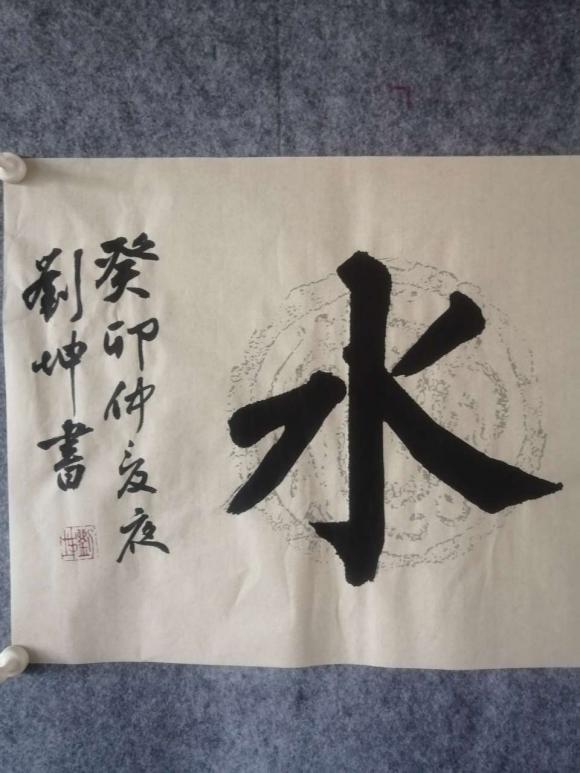 水
癸卯仲夏夜
劉坤書